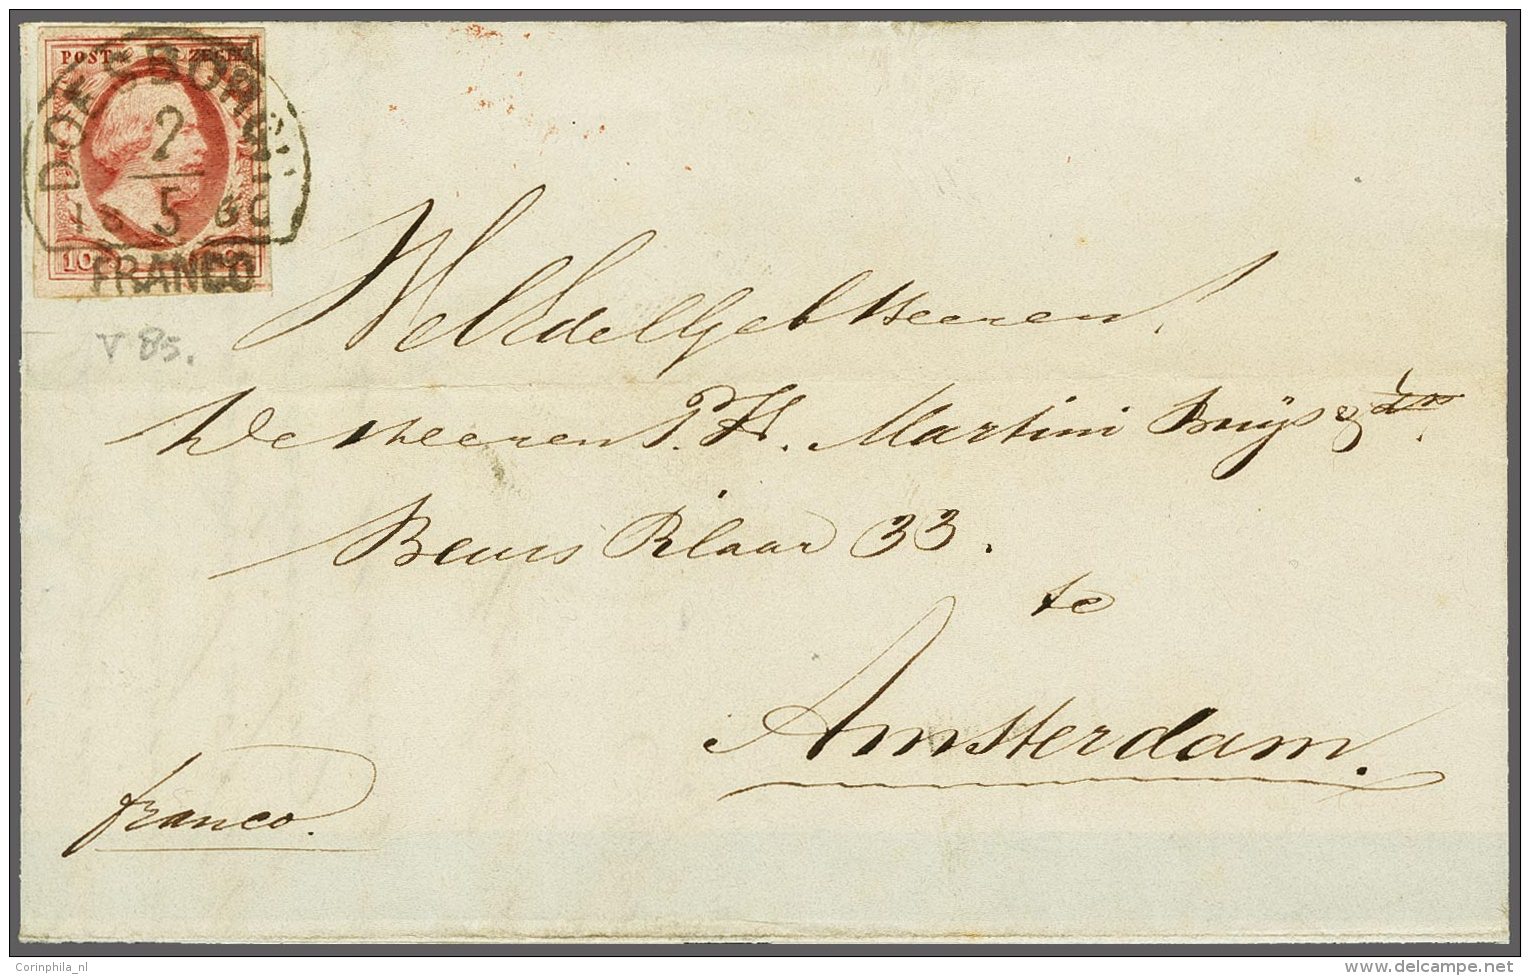 POST ZEGEL
DOESBORGH
2
18 5 60
10 C
FRANCO
V 85.
WelEdelGeb Heeren
de Heeren P. H. Martini Buijs & Zn.
Beurs Plaar 33.
te
Amsterdam.
franco.
Corinphila_nl
www.delcampe.net